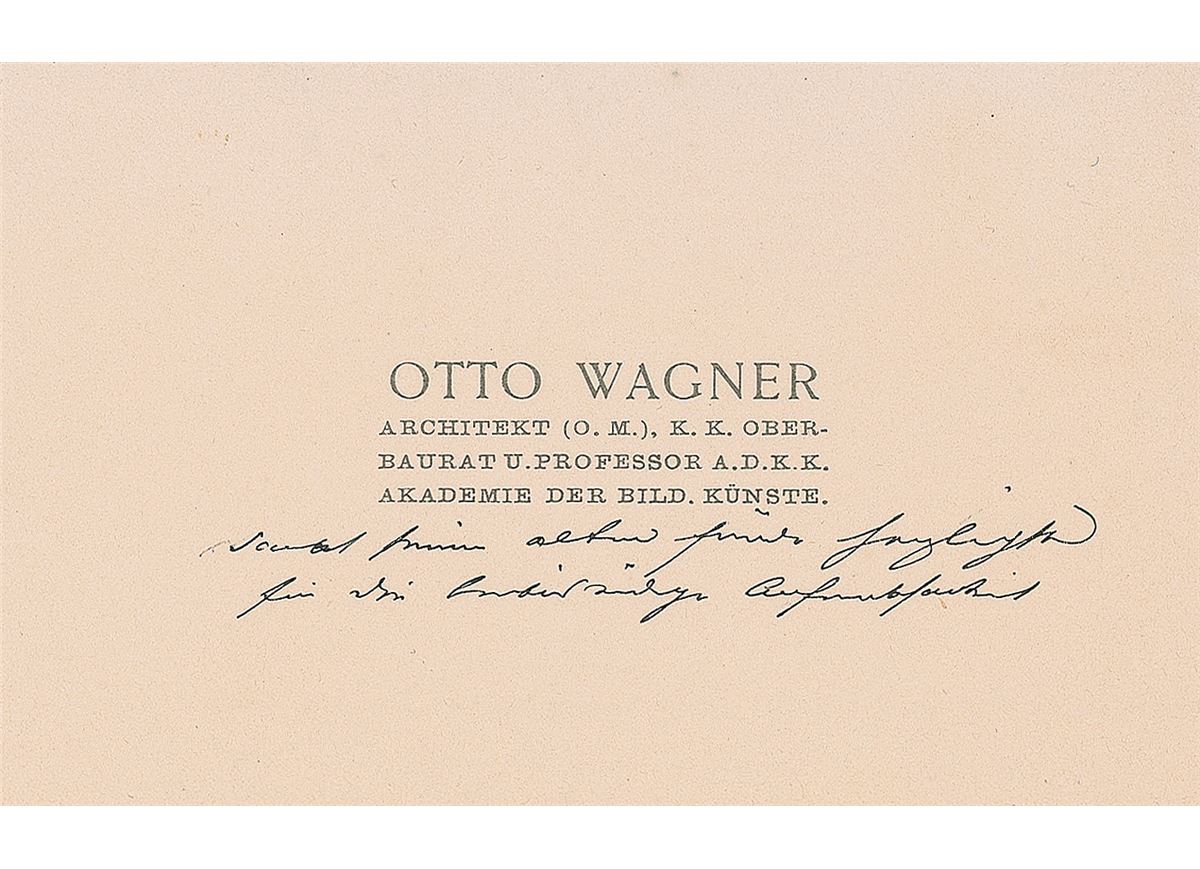 OTTO WAGNER
ARCHITEKT (O. M.), K. K. OBER-
BAURAT U. PROFESSOR A.D.K.K.
AKADEMIE DER BILD. KÜNSTE.
dankt seinem alten Freunde herzlichst
für die liebenswürdige Aufmerksamkeit